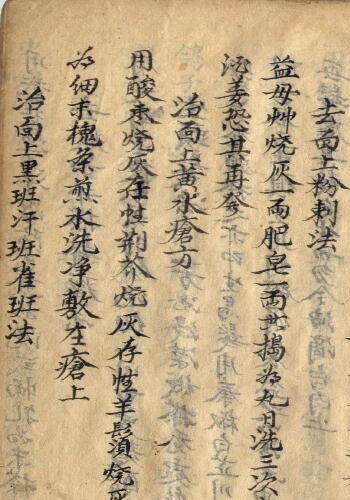 去面上粉刺法
益母艸烧灰一両肥皂一両共搗為丸日洗三次
酒姜恐其再発
治面上黄水瘡方
用酸枣烧灰存性荆芥烧灰存性羊鬚烧灰
為细末槐条煎水洗净敷在瘡上
治面上黑班汗班雀班法